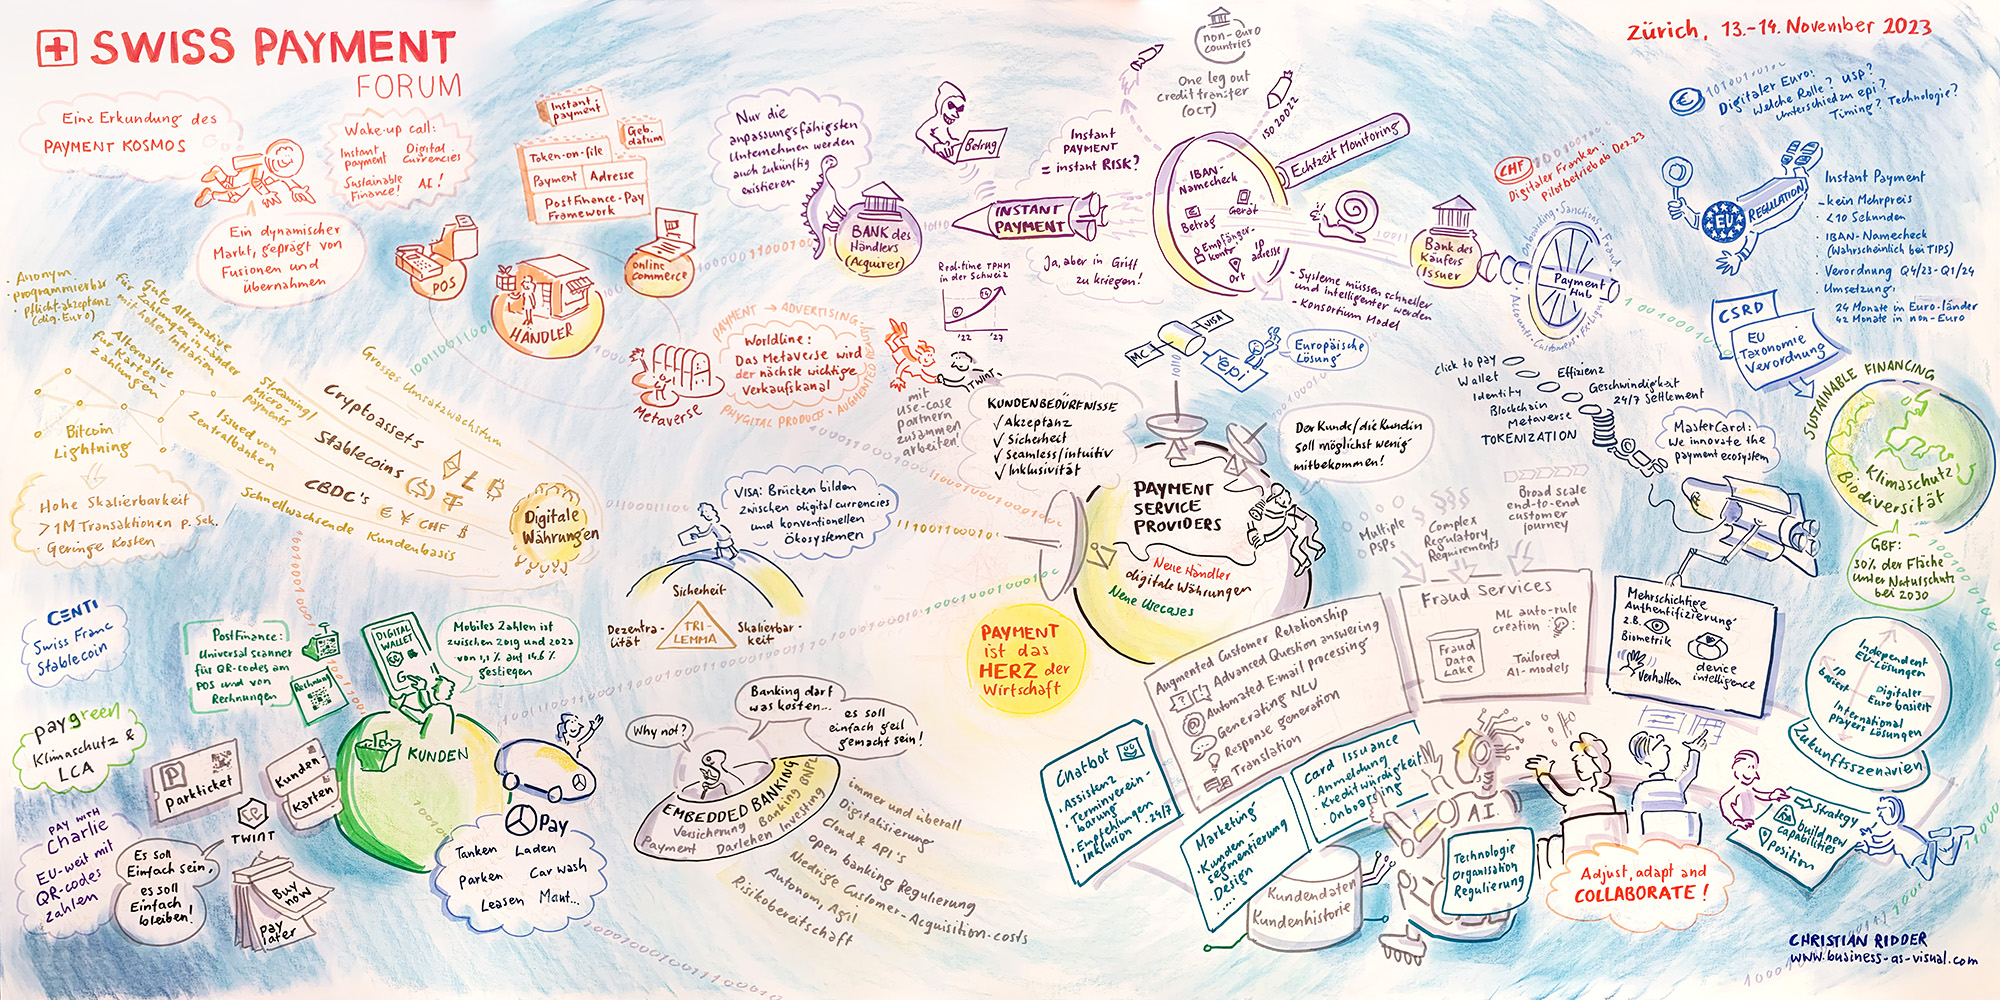 SWISS PAYMENT
FORUM
Zürich, 13.-14. November 2023
Eine Erkundung des
PAYMENT KOSMOS
Wake-up call:
Instant
payment
Digital
Currencies
Sustainable
Finance!
AI!
Ein dynamischer
Markt, geprägt von
Fusionen und
Übernahmen
Instant
payment
Geb.
datum
Token-on-file
Payment
Adresse
PostFinance-Pay
Framework
POS
HÄNDLER
online
commerce
Nur die
anpassungsfähigsten
Unternehmen werden
auch zukünftig
existieren
BANK des
Händlers
(Acquirer)
Betrug
Instant
PAYMENT
= instant RISK?
INSTANT
PAYMENT
Ja, aber in Griff
zu kriegen!
Real-time TPHM
in der Schweiz
'22
'27
non-euro
countries
One leg out
credit transfer
(OCT)
ISO 20022
Echtzeit Monitoring
IBAN-
Namecheck
Betrag
Gerät
Empfänger-
konto
IP
adresse
Ort
- Systeme müssen schneller
und intelligenter werden
- Konsortium Model
Bank des
Käufers
(Issuer
Onboarding · Sanctions · Fraud
Payment
Hub
CHF
Digitaler Franken:
Pilotbetrieb ab Dez.23
Digitaler Euro:
Welche Rolle? USP?
Unterschied zu epi?
Timing? Technologie?
EU
REGULATION
Instant Payment
- kein Mehrpreis
· <10 Sekunden
· IBAN-Namecheck
(Wahrscheinlich bei TIPS)
· Verordnung Q4/23-Q1/24
· Umsetzung:
24 Monate in Euro-länder
42 Monate in non-Euro
CSRD
EU
Taxonomie
Verordnung
SUSTAINABLE FINANCING
Klimaschutz
Biodiversität
GBF:
30% der Fläche
unter Naturschutz
bei 2030
· Anonym
· programmierbar
· Pflicht-akzeptanz
(dig. Euro)
Gute Alternative
für Zahlungen in Länder
mit hoher Inflation
Alternative
für Karten-
Zahlungen
Bitcoin
Lightning
Hohe Skalierbarkeit
> 1M Transaktionen p. Sek.
· Geringe Kosten
Grosses Umsatzwachstum
Streaming/
Micro-
payments
Issued von
Zentralbanken
Cryptoassets
Stablecoins
CBDC's € ¥ CHF $
Schnellwachsende Kundenbasis
Digitale
Währungen
Metaverse
PAYMENT → ADVERTISING
PHYGITAL PRODUCTS · AUGMENTED REALITY
Worldline:
Das Metaverse wird
der nächste wichtige
Verkaufskanal
TWINT
mit
use-case
partnern
zusammen
arbeiten!
KUNDENBEDÜRFNISSE
✓ Akzeptanz
✓ Sicherheit
✓ Seamless/intuitiv
✓ Inklusivität
MC
VISA
epi
Europäische
Lösung
Der Kunde/die Kundin
soll möglichst wenig
mitbekommen!
PAYMENT
SERVICE
PROVIDERS
Neue Händler
digitale Währungen
Neue Usecases
PAYMENT
ist das
HERZ der
Wirtschaft
click to pay
Wallet
Identity
Blockchain
Metaverse
TOKENIZATION
Effizienz
Geschwindigkeit
24/7 Settlement
MasterCard:
We innovate the
payment ecosystem
VISA: Brücken bilden
zwischen digital currencies
und konventionellen
Ökosystemen
Sicherheit
Dezentra-
lität
TRI-
LEMMA
Skalierbar-
keit
Multiple
PSPs
Complex
Regulatory
Requirements
Broad scale
end-to-end
customer
journey
Fraud Services
Fraud
Data
Lake
ML auto-rule
creation
Tailored
AI-models
Mehrschichtige
Authentifizierung
z.B.
Biometrik
Verhalten
device
intelligence
Independent
EU-Lösungen
IP
basiert
Digitaler
Euro basiert
International
players Lösungen
Zukunftsszenarien
CENTI
Swiss Franc
Stablecoin
PostFinance:
Universal scanner
für QR-codes am
POS und von
Rechnungen
Rechnung
DIGITAL
WALLET
Mobiles Zahlen ist
zwischen 2019 und 2023
von 1,1 % auf 14,6 %
gestiegen
KUNDEN
paygreen
Klimaschutz &
LCA
PAY WITH
Charlie
EU-weit mit
QR-codes
zahlen
Parkticket
Kunden-
Karten
TWINT
Es soll
Einfach sein,
es soll
Einfach
bleiben!
Buy
now
pay
later
Pay
Tanken
Laden
Parken
Car wash
Leasen
Maut...
Why not?
Banking darf
was kosten...
es soll
einfach geil
gemacht sein!
EMBEDDED BANKING
Versicherung
Banking
BNPL
Payment
Darlehen
Investing
immer und überall
Digitalisierung
Cloud & API's
Open banking Regulierung
Niedrige Customer-Acquisition-costs
Autonom, Agil
Risikobereitschaft
Augmented Customer Relationship
Advanced Question answering
Automated E-mail processing
Generating NLU
Response generation
Translation
Chatbot
· Assistenz
· Terminverein-
barung
· Empfehlungen
· Inklusion · 24/7
Marketing
· Kunden-
segmentierung
· Design
....
Card Issuance
· Anmeldung
· Kreditwürdigkeit
· Onboarding
Kundendaten
Kundenhistorie
A.I.
Technologie
Organisation
Regulierung
Adjust, adapt and
COLLABORATE!
Strategy
build new
capabilities
Position
CHRISTIAN RIDDER
www.business-as-visual.com